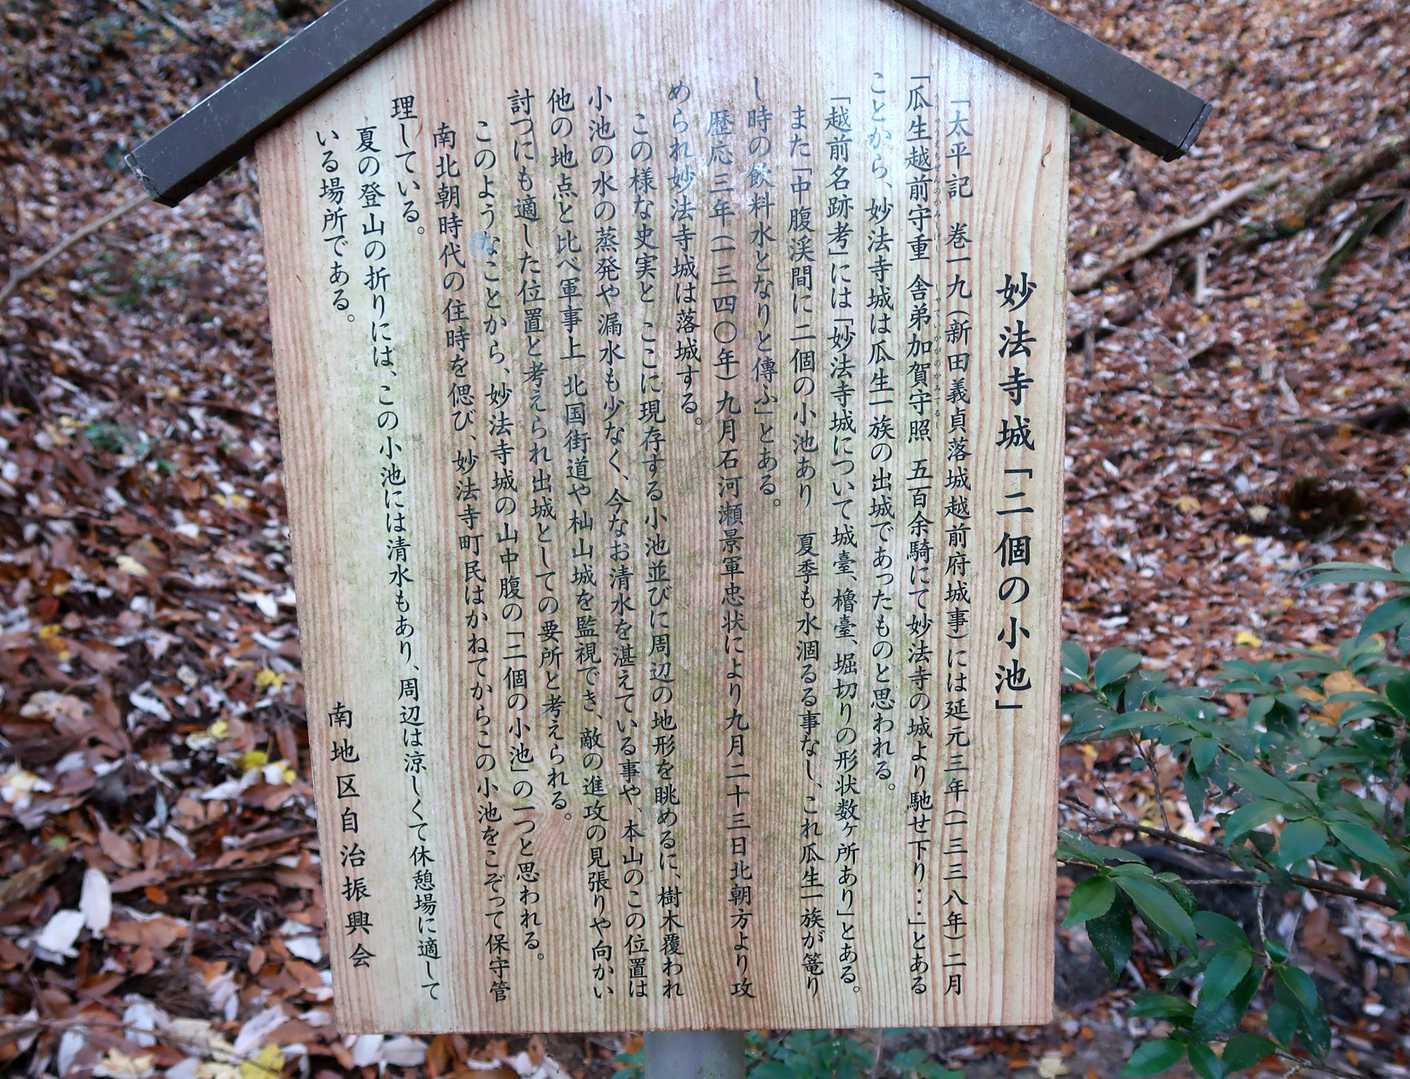 妙法寺城「二個の小池」
「太平記　巻一九(新田義貞落城越前府城事)には延元三年(一三三八年)二月
「瓜生越前守重　舎弟加賀守照　五百余騎にて妙法寺の城より馳せ下り・・・」とある
ことから、妙法寺城は瓜生一族の出城であったものと思われる。
「越前名跡考」には「妙法寺城について城臺、櫓臺、堀切りの形状数ヶ所あり」とある。
また「中腹渓間に二個の小池あり　夏季も水涸るる事なし、これ瓜生一族が篭り
し時の飲料水となりと傳ふ」とある。
歴応三年(一三四〇年)九月石河瀬景軍忠状により九月二十三日北朝方より攻
められ妙法寺城は落城する。
この様な史実と　ここに現存する小池並びに周辺の地形を眺めるに、樹木覆われ
小池の水の蒸発や漏水も少なく、今なお清水を湛えている事や、本山のこの位置は
他の地点と比べ軍事上　北国街道や杣山城を監視でき、敵の進攻の見張りや向かい
討つにも適した位置と考えられ出城としての要所と考えられる。
このようなことから、妙法寺城の山中腹の「二個の小池」の一つと思われる。
南北朝時代の往時を偲び、妙法寺町民はかねてからこの小池をこぞって保守管
理している。
夏の登山の折りには、この小池には清水もあり、周辺は涼しくて休憩場に適して
いる場所である。
南地区自治振興会